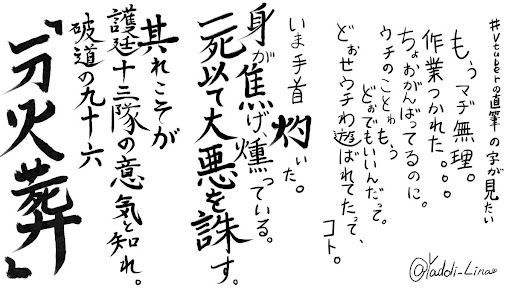 #Vtuberの直筆の字が見たい
もぅマヂ無理。
作業つかれた。。。
ちょおがんばってるのに。
ウチのことゎもぅ
どぉでもいいんだって。
どぉせウチゎ遊ばれてたって、
コト。
いま手首灼いた。
身が焦げ、燻っている。
一死以て大悪を誅す。
其れこそが
護廷十三隊の意気と知れ。
破道の九十六
「一刀火葬」
@Yaddi_Lina